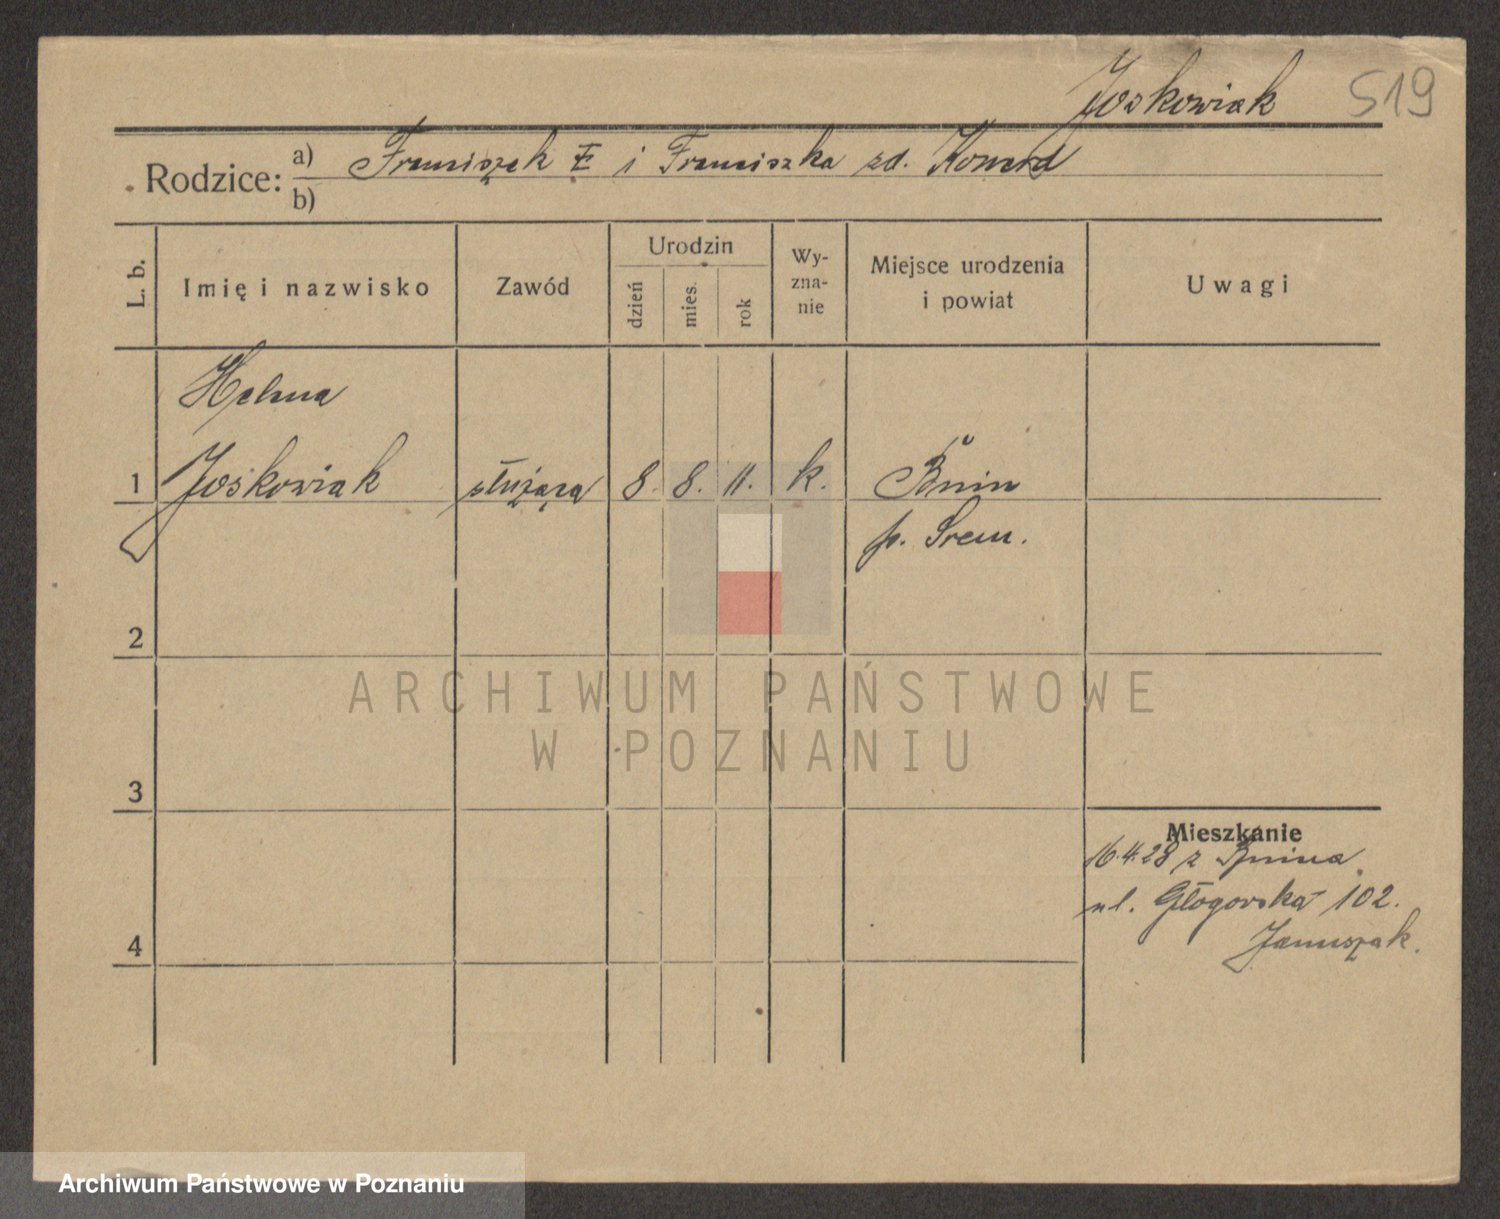 Joskowiak 519
Rodzice: a) Franciszek i Franciszka zd. Konrad
b)
L. b.
Imię i nazwisko
Zawód
Urodzin
dzień
mies.
rok
Wy-
zna-
nie
Miejsce urodzenia
i powiat
Uwagi
Helena
1 Joskowiak służąca 8. 8. 11. k. Bnin
p. Śrem.
2
ARCHIWUM PAŃSTWOWE
W POZNANIU
3
Mieszkanie
16.4.28 z Bnina
ul. Głogowska 102.
4
Januszak.
Archiwum Państwowe w Poznaniu